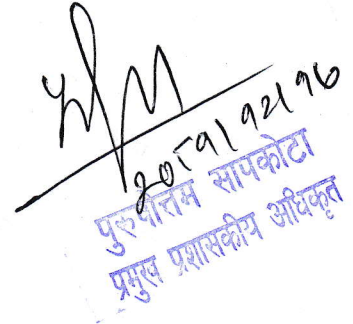 २०८१/१२/१७
पुरुषोत्तम सापकोटा
प्रमुख प्रशासकीय अधिकृत